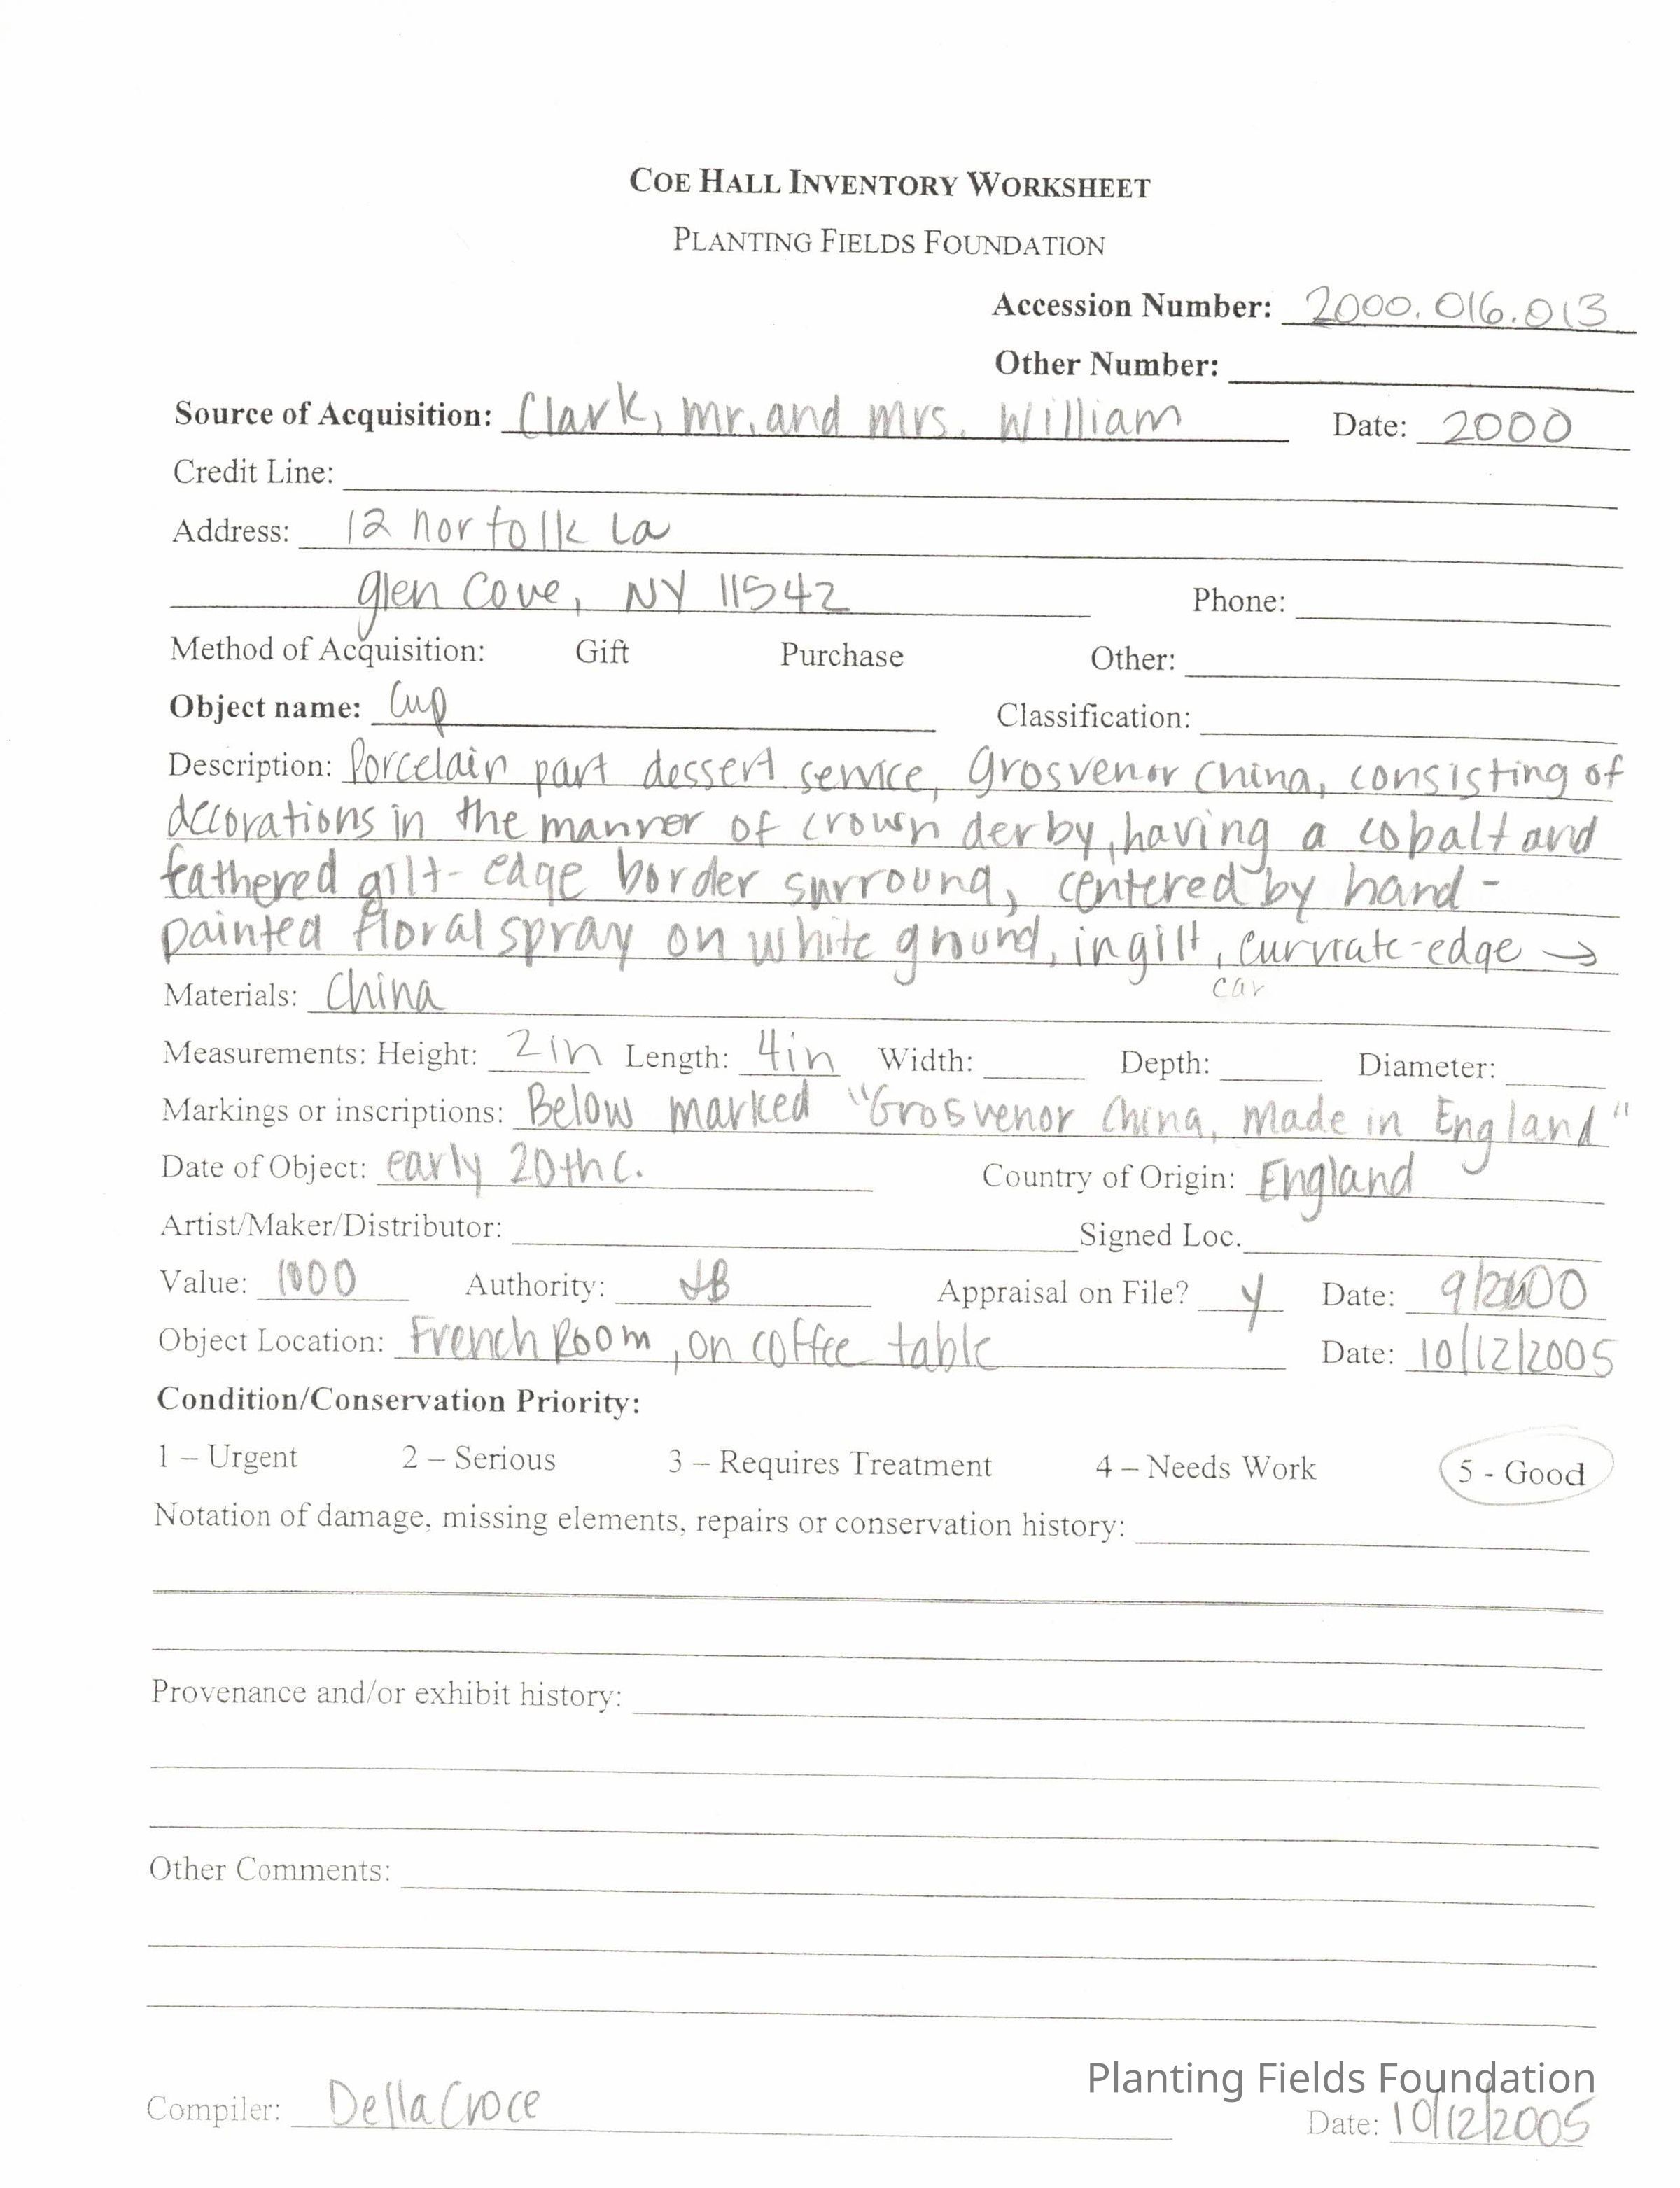 COE HALL INVENTORY WORKSHEET
PLANTING FIELDS FOUNDATION
Accession Number: 2000.016.013
Other Number:
Source of Acquisition: Clark, Mr. and Mrs. William Date: 2000
Credit Line:
Address: 12 Norfolk La
Glen Cove, NY 11542 Phone:
Method of Acquisition: Gift Purchase Other:
Object name: Cup Classification:
Description: Porcelain part dessert service, Grosvenor China, consisting of
decorations in the manner of crown derby, having a cobalt and
fathered gilt-edge border surround, centered by hand-
painted floral spray on white ground, in gilt, curvrate-edge →
car
Materials: China
Measurements: Height: 2in Length: 4in Width: Depth: Diameter:
Markings or inscriptions: Below marked "Grosvenor China, Made in England"
Date of Object: early 20th c. Country of Origin: England
Artist/Maker/Distributor: Signed Loc.
Value: 1000 Authority: JB Appraisal on File? y Date: 9/2000
Object Location: French Room, on coffee table Date: 10/12/2005
Condition/Conservation Priority:
1 – Urgent 2 – Serious 3 – Requires Treatment 4 – Needs Work 5 - Good
Notation of damage, missing elements, repairs or conservation history:
Provenance and/or exhibit history:
Other Comments:
Planting Fields Foundation
Compiler: DellaCroce Date: 10/12/2005